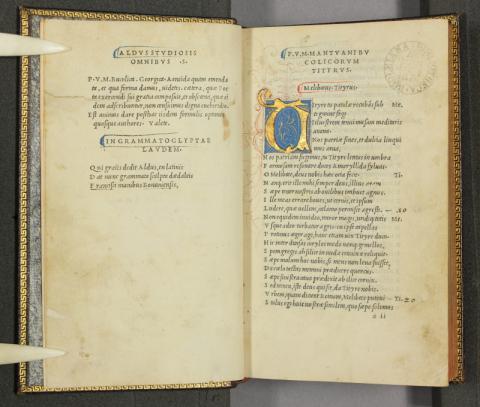 ALDVS STVDIOSIS
OMNIBVS .S.
P. V. M. Bucolica, Georgica, Aeneida quam emenda
ta, et qua forma damus, uidetis. cætera, quæ Poe
ta exercendi sui gratia composuit, et obscœna, quæ ei
dem adscribuntur, non censuimus digna enchiridio.
Est animus dare posthac iisdem formulis optimos
quosque authores. Valete.
IN GRAMMATOGLYPTAE
LAVDEM.
Qui graiis dedit Aldus, en latinis
Dat nunc grammata scalpta dædaleis
Francisci manibus Bononiensis.
P. V. M. MANTVANI BV
COLICORVM
TITYRVS.
Melibœus. Tityrus.
Tityre tu patulæ recubās sub Me.
tegmine fagi
Siluestrem tenui musam meditaris
auena.
Nos patriæ fines, et dulcia linqui
mus arua,
Nos patriam fugimus, tu Tityre lentus in umbra
Formosam resonare doces Amaryllida syluas.
O Melibœe, deus nobis hæc ocia fecit. Ti.
Nanq; erit ille mihi semper deus, illius aram
Sæpe tener nostris ab ouilibus imbuet agnus.
Ille meas errare boues, ut cernis, et ipsum
Ludere, quæ uellem, calamo permisit agresti. 10
Non equidem inuideo, miror magis, undiq; totis Me.
Vsque adeo turbatur agris. en ipse capellas
Protinus æger ago, hanc etiam uix Tityre duco.
Hic inter densas corylos modo nanq; gemellos,
Spem gregis ah silice in nuda connixa reliquit.
Sæpe malum hoc nobis, si mens non læua fuisset,
De cœlo tactas memini prædicere quercus.
Sæpe sinistra caua prædixit ab ilice cornix.
Sed tamen, iste deus qui sit, da Tityre nobis.
Vrbem, quam dicunt Romam, Melibœe putaui Ti. 20
Stultus ego huic nostræ similem, quo sæpe solemus
a ii